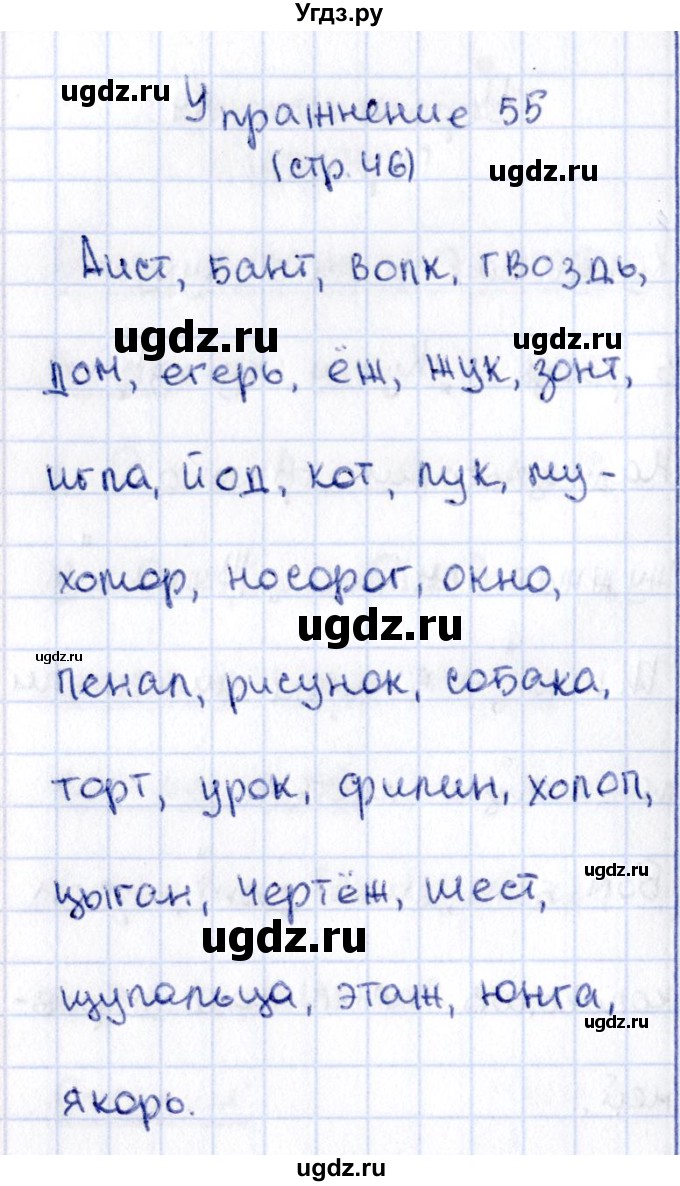 Угдз.ру
ugdz.ru
Упражнение 55
(стр. 46)
ugdz.ru
Аист, бант, волк, гвоздь,
ugdz.ru
ugdz.ru
дом, егерь, ёж, жук, зонт,
игла, йод, кот, лук, му-
хомор, носорог, окно,
ugdz.ru
ugdz.ru
пенал, рисунок, собака,
торт, урок, филин, холоп,
ugdz.ru
цыган, чертёж, шест,
ugdz.ru
щупальца, этаж, юнга,
ugdz.ru
якорь.
ugdz.ru